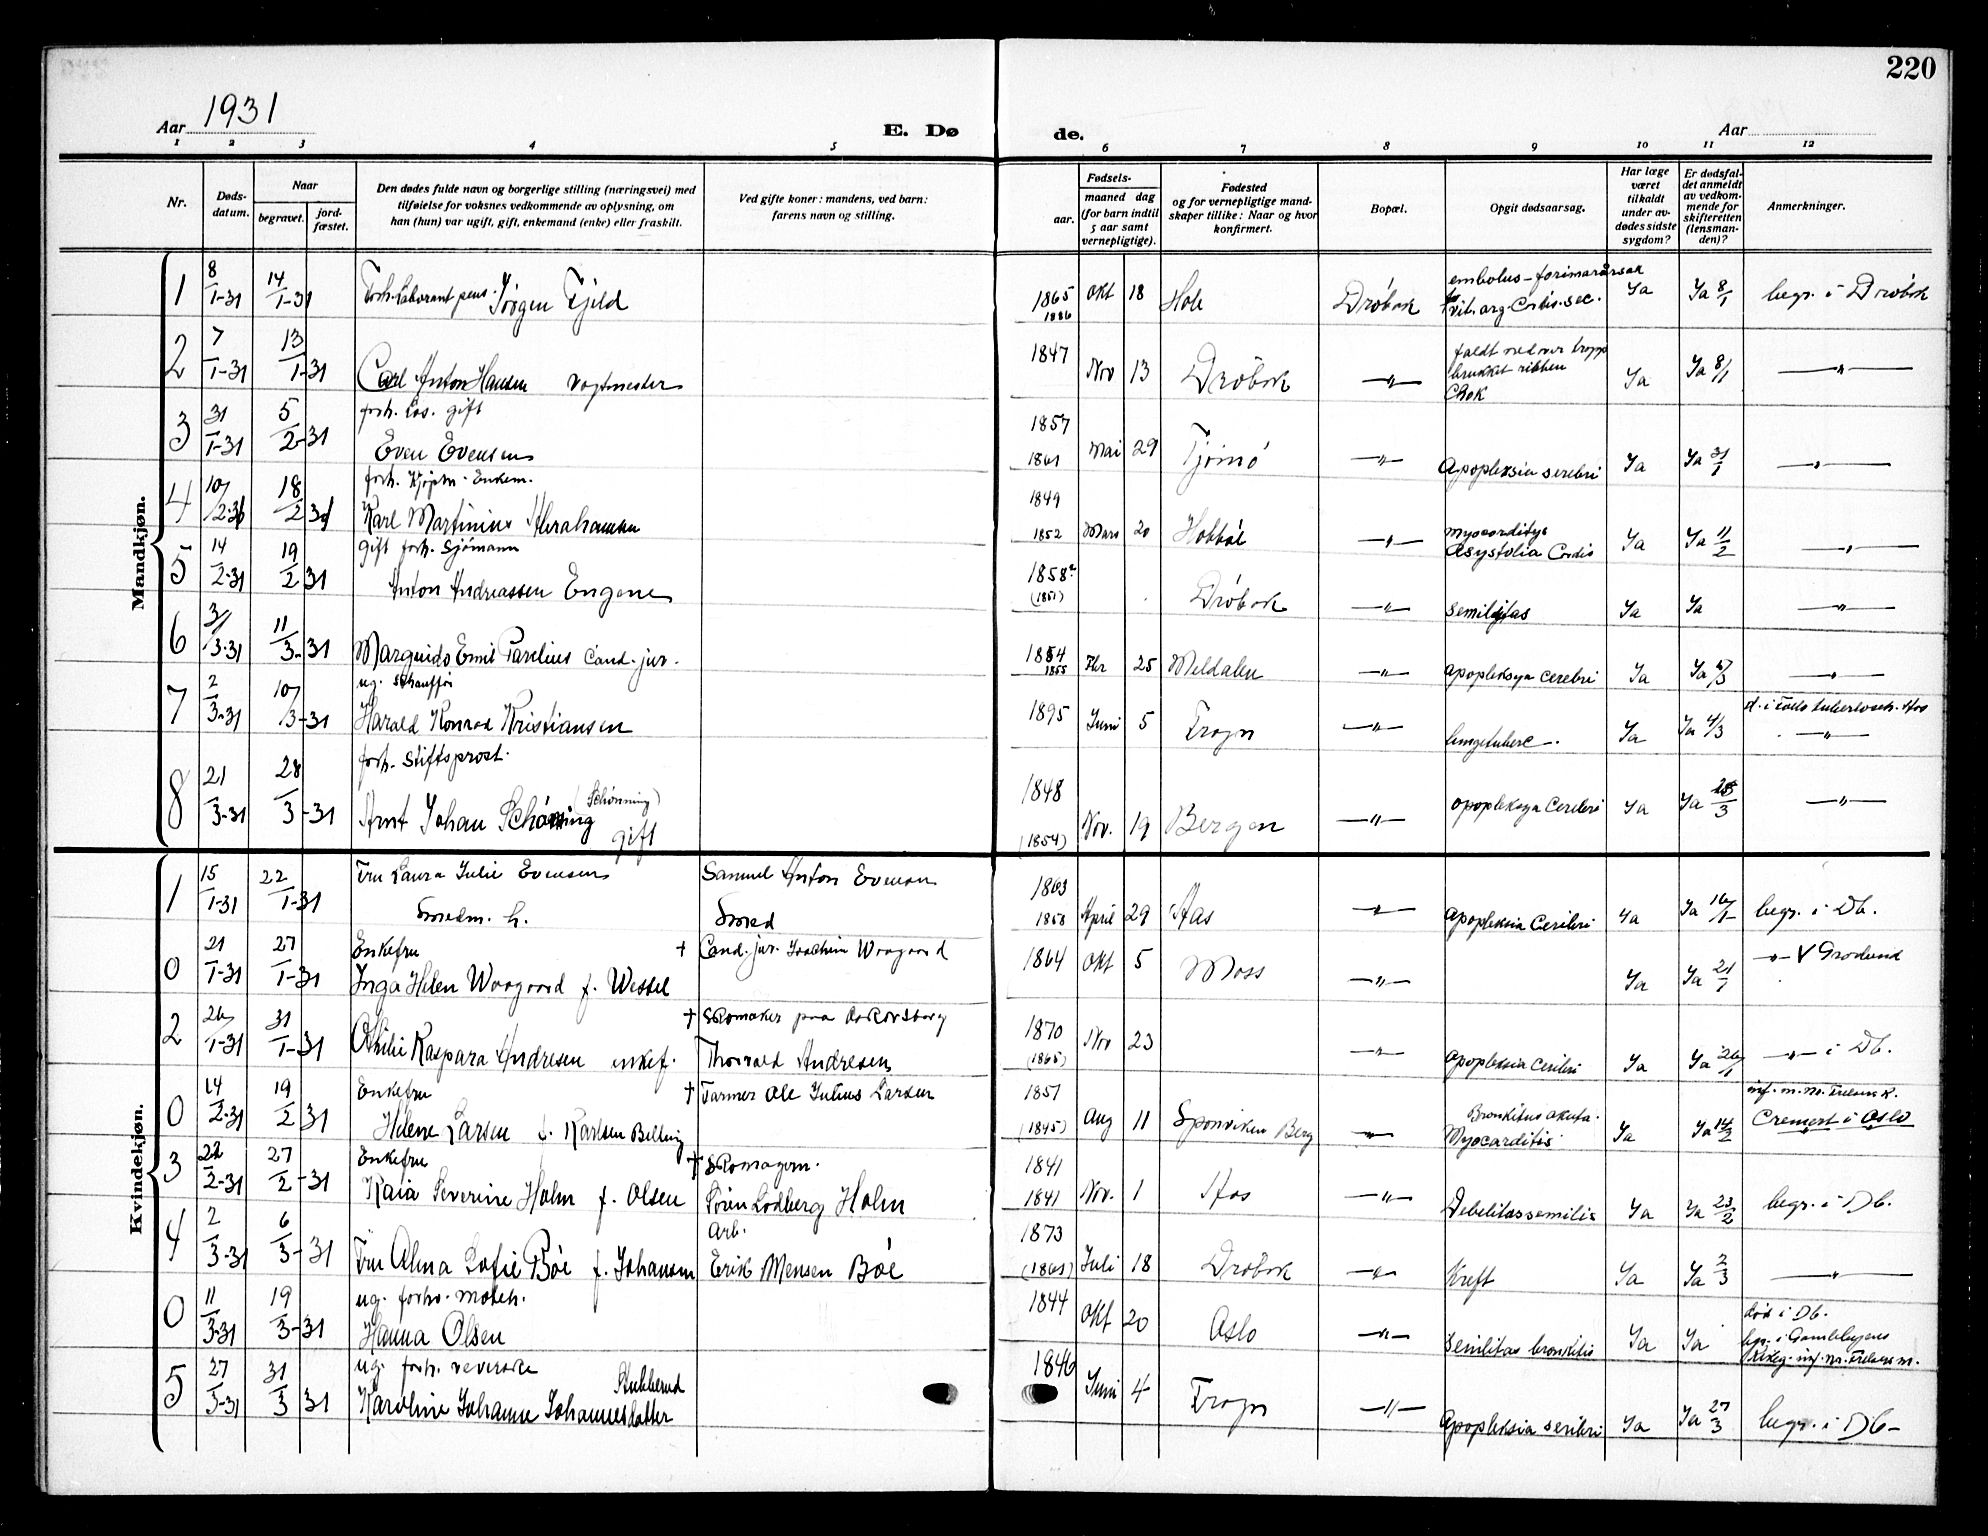 220
Aar 1931
E. Dø de.
Aar
1 2 3 4 5 6 7 8 9 10 11 12
Nr.
Døds-datum.
Naar
begravet.
jord-fæstet.
Den dødes fulde navn og borgerlige stilling (næringsvei) med
tilføielse for voksnes vedkommende av oplysning, om
han (hun) var ugift, gift, enkemand (enke) eller fraskilt.
Ved gifte koner: mandens, ved barn:
farens navn og stilling.
Fødsels-
aar.
maaned dag
(for barn indtil
5 aar samt
vernepligtige).
Fødested
og for vernepligtige mand-
skaper tillike: Naar og hvor
konfirmert.
Bopæl.
Opgit dødsaarsag.
Har læge
været
tilkaldt
under av-
dødes sidste
sygdom?
Er dødsfal-
det anmeldt
av vedkom-
mende for
skifteretten
(lensman-
den)?
Anmerkninger.
Mandkjøn.
1 8/1-31 14/1-31 Forh. Laborant pens. Jörgen Fjeld 1865 1886 Okt 18 Hole Dröbak embolus Cordis sec. Ja Ja 8/1 begr. i Dröbak
2 7/1-31 13/1-31 Carl Anton Hansen Vogtmester 1847 Nov 13 Dröbak —"— faldt ned over trapp brukket ribben Chok Ja Ja 8/1 —"—
3 31/1-31 5/2-31 forh. Los. gift
Even Evensen 1857 1861 Mai 29 Tjömö —"— Apopleksia serebri Ja Ja 31/1 —"—
4 10/2-31 18/2 31 forh. Kjøpm. Enkem.
Karl Martinius Abrahamsen 1849 1852 Mars 20 Hobböl —"— Asystolia Cordis Ja Ja 11/2 —"—
5 14/2-31 19/2 31 gift forh. Sjömann
Anton Andreassen Engene 1858 (1851) Dröbak —"— Ja Ja —"—
6 3/3-31 11/3-31 Emil Parelius Cand. jur. 1854 1855 25 Meldalen —"— apopleksya cerebri Ja Ja —"—
7 2/3-31 10/3-31 ug. Schaufför
Harald Konrad Kristiansen 1895 Juni 5 Frogn —"— lungetuberc. Ja Ja 4/3 —"—
8 21/3-31 28/3-31 forh. Stiftsprost.
Arnt Johan Schönning (Schönning) gift 1848 (1854) Nov. 19 Bergen —"— apopleksya Cerebri Ja Ja —"—
Kvindekjøn.
1 15/1-31 22/1-31 Fru Laura Julie Evensen
Smedm. h. Samuel Anton Evensen
Smed 1863 1858 April 29 Aas —"— apopleksia Cerebri Ja Ja 16/1 begr. i Db.
0 21/1-31 27/1-31 Enkefru
Inga Helen Waagaard f. Wessel + Cand. jur. Joachim Waagaard 1864 Okt 5 Moss —"— Ja Ja 21/1
2 26/1-31 31/1-31 Kaspara Andresen enkef. + Skomaker paa
Thorvald Andresen 1870 (1865) Nov 23 —"— apopleksia Cerebri Ja Ja 26/1 —"— i Db.
0 14/2-31 19/2 31 Enkefru
Helene Larsen f. Karlsen + Farmer Ole Julius Larsen 1851 (1845) Aug 11 Sponviken Berg —"— Bronkitus akuta.
Myocarditis Ja Ja 14/2 Cremert i Oslo
3 22/2-31 27/2-31 Enkefru
Kaia Severine Holm f. Olsen + Skomagerm.
Sören Lodberg Holm 1841 1841 Nov. 1 Aas —"— Debelitas semilis Ja Ja 23/2 begr. i Db.
4 2/3-31 6/3-31 Fru Alma Sofie Böe f. Johansen Arb.
Erik Mensen Böe 1873 Juli 18 Dröbak —"— Kreft Ja Ja 2/3 —"—
0 11/3-31 19/3-31 ug. forhv.
Hanna Olsen 1844 Okt 20 Oslo —"— senilitas bronkitis Ja Ja död i Db.
5 27/3-31 31/3 31 ug. forh. veverske
Karoline Johanne Johannesdatter Stubberud 1846 Juni 4 Frogn —"— Apopleksia seribri Ja Ja 27/3 begr. i Db-